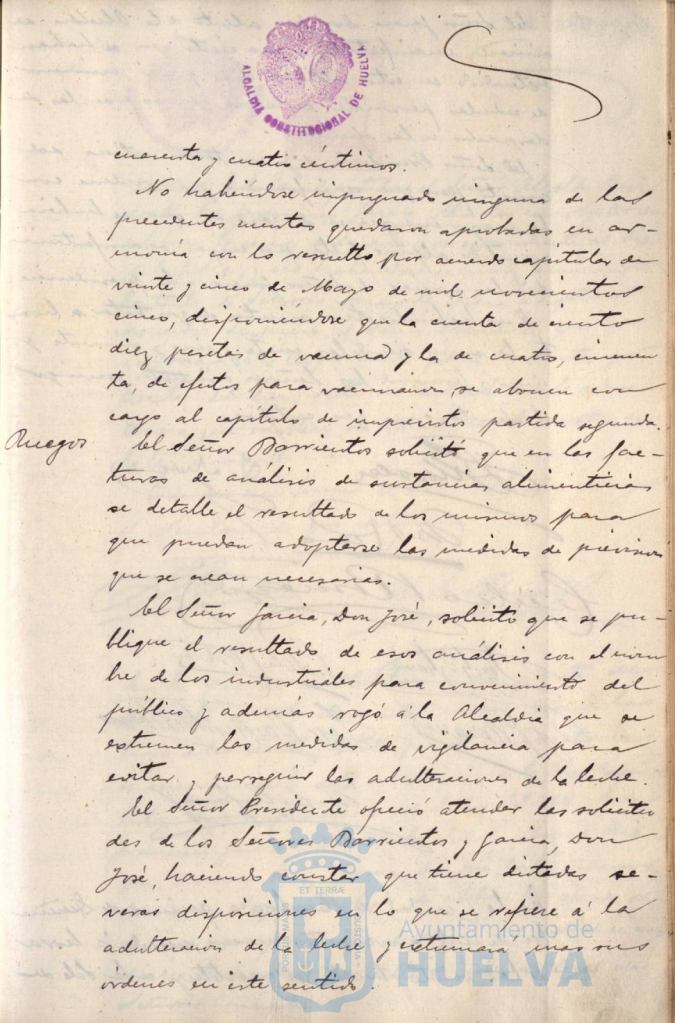 ALCALDIA CONSTITUCIONAL DE HUELVA
cuarenta y cuatro céntimos.
No habiéndose impugnado ninguna de las
precedentes cuentas quedaron aprobadas en ar-
monía con lo resuelto por acuerdo capitular de
veinte y cinco de Mayo de mil novecientos
cinco, disponiéndose que la cuenta de ciento
diez pesetas de vacuna y la de cuatro, cincuen
ta, de efectos para vacunación, se abonen con
cargo al capítulo de imprevistos partida segunda.
Ruegos
El Señor Barrientos solicitó que en las fac-
turas de análisis de sustancias alimenticias
se detalle el resultado de los mismos para
que puedan adoptarse las medidas de previsión
que se crean necesarias.
El Señor Garcia, Don José, solicitó que se pu-
blique el resultado de esos análisis con el nom-
bre de los industriales para conocimiento del
público y además rogó á la Alcaldia que se
extremen las medidas de vigilancia para
evitar y perseguir las adulteraciones de la leche.
El Señor Presidente ofreció atender las solicitu
des de los Señores Barrientos y Garcia, Don
José, haciendo constar que tiene dictadas se-
veras disposiciones en lo que se refiere á la
adulteracion de la leche y extremará mas sus
órdenes en este sentido.
ET TERRÆ
PORTUS MARIS
CUSTODIA
Ayuntamiento de
HUELVA